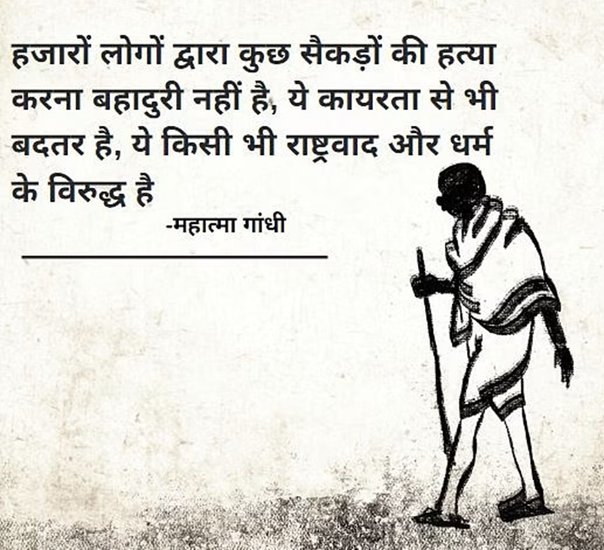 हजारों लोगों द्वारा कुछ सैकड़ों की हत्या
करना बहादुरी नहीं है, ये कायरता से भी
बदतर है, ये किसी भी राष्ट्रवाद और धर्म
के विरुद्ध है
-महात्मा गांधी